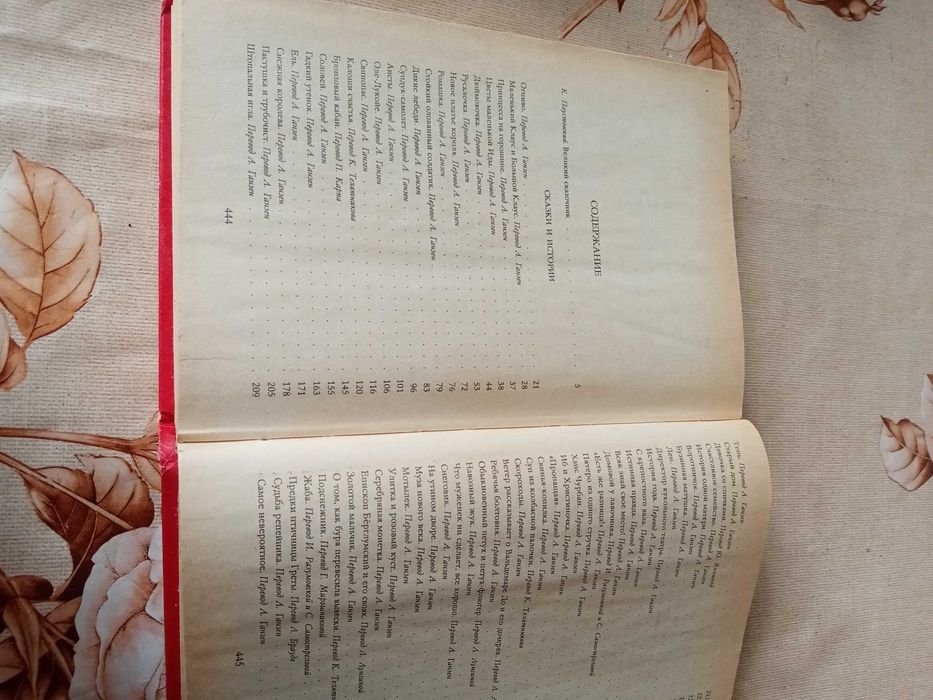 СОДЕРЖАНИЕ
К. Паустовский. Великий сказочник . . . 5
СКАЗКИ И ИСТОРИИ
Огниво. Перевод А. Ганзен . . . 21
Маленький Клаус и Большой Клаус. Перевод А. Ганзен . . . 28
Принцесса на горошине. Перевод А. Ганзен . . . 37
Цветы маленькой Иды. Перевод А. Ганзен . . . 38
Дюймовочка. Перевод А. Ганзен . . . 44
Русалочка. Перевод А. Ганзен . . . 53
Новое платье короля. Перевод А. Ганзен . . . 72
Ромашка. Перевод А. Ганзен . . . 76
Стойкий оловянный солдатик. Перевод А. Ганзен . . . 79
Дикие лебеди. Перевод А. Ганзен . . . 83
Сундук-самолет. Перевод А. Ганзен . . . 96
Аисты. Перевод А. Ганзен . . . 101
Оле-Лукойе. Перевод А. Ганзен . . . 106
Свинопас. Перевод А. Ганзен . . . 116
Калоши счастья. Перевод К. Телятникова . . . 120
Бронзовый кабан. Перевод П. Карпа . . . 145
Соловей. Перевод А. Ганзен . . . 155
Гадкий утенок. Перевод А. Ганзен . . . 163
Ель. Перевод А. Ганзен . . . 171
Снежная королева. Перевод А. Ганзен . . . 178
Пастушка и трубочист. Перевод А. Ганзен . . . 205
Штопальная игла. Перевод А. Ганзен . . . 209
444
Тень. Перевод А. Ганзен
Старый дом. Перевод А. Ганзен
Девочка со спичками. Перевод А. Ганзен
Счастливое семейство. Перевод Ю. Яхниной
История одной матери. Перевод А. Ганзен
Воротничок. Перевод А. Ганзен
Бутылочное. Перевод А. Ганзен
Лен. Перевод А. Ганзен
Директор кукольного театра. Перевод А. Ганзен
История года. Перевод А. Ганзен
С крепостного вала. Перевод А. Ганзен
Истинная правда. Перевод А. Ганзен
Всяк знай свое место! Перевод А. Ганзен
Домовой у лавочника. Перевод И. Разумовской и С. Самостреловой
«Есть же разница!» Перевод А. Ганзен
Пятеро из одного стручка. Перевод А. Ганзен
Ханс Чурбан. Перевод А. Ганзен
Иб и Христиночка. Перевод А. Ганзен
«Пропащая». Перевод А. Ганзен
Свинья копилка. Перевод А. Ганзен
Суп из колбасной палочки. Перевод К. Телятникова
Скороходы. Перевод А. Ганзен
Ветер рассказывает о Вальдемаре До и его дочерях. Перевод А.
Ребячья болтовня. Перевод А. Ганзен
Обыкновенный петух и петух-флюгер. Перевод А. Ганзен
Навозный жук. Перевод А. Лунгиной
Что муженек ни сделает, все хорошо. Перевод А. Ганзен
Снеговик. Перевод А. Ганзен
На утином дворе. Перевод А. Ганзен
Муза нового века. Перевод А. Ганзен
Мотылек. Перевод А. Ганзен
Улитка и розовый куст. Перевод А. Ганзен
Серебряная монетка. Перевод А. Ганзен
Епископ Бёрглумский и его сняк. Перевод Л. Лунгиной
Золотой мальчик. Перевод А. Ганзен
О том, как буря перевесила вывески. Перевод К. Телятн
Подснежник. Перевод Г. Мирошниковой
Жаба. Перевод И. Разумовской и С. Самостреловой
Предки птичницы Греты. Перевод Л. Брауде
Судьба репейника. Перевод А. Ганзен
Самое невероятное. Перевод А. Ганзен
445